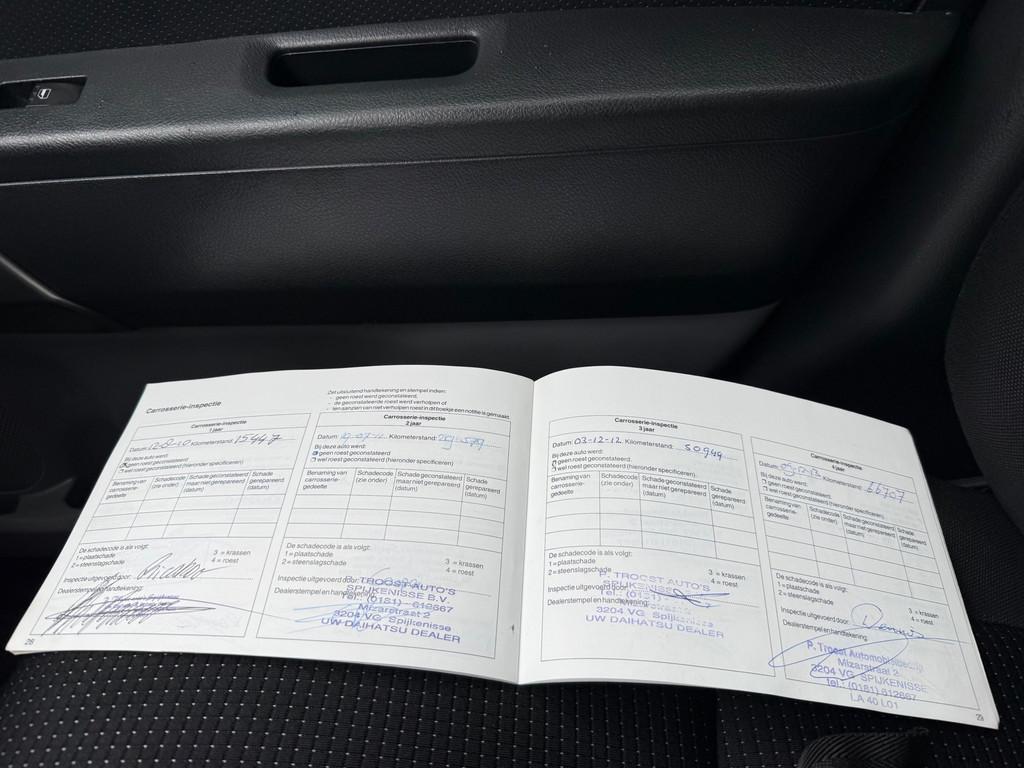 Carrosserie-inspectie
Zet uitsluitend handtekening en stempel indien:
- geen roest werd geconstateerd,
- de geconstateerde roest werd verholpen of
- ten aanzien van niet verholpen roest in dit boekje een notitie is gemaakt.
Carrosserie-inspectie
1 jaar
Datum: Kilometerstand: 15447
Bij deze auto werd:
geen roest geconstateerd
wel roest geconstateerd (hieronder specificeren)
Benaming van carrosserie-gedeelte
Schadecode (zie onder)
Schade geconstateerd maar niet gerepareerd (datum)
Schade gerepareerd (datum)
De schadecode is als volgt:
1 = plaatschade 3 = krassen
2 = steenslagschade 4 = roest
Inspectie uitgevoerd door:
Dealerstempel en handtekening:
28
Carrosserie-inspectie
2 jaar
Datum: Kilometerstand:
Bij deze auto werd:
geen roest geconstateerd
wel roest geconstateerd (hieronder specificeren)
Benaming van carrosserie-gedeelte
Schadecode (zie onder)
Schade geconstateerd maar niet gerepareerd (datum)
Schade gerepareerd (datum)
De schadecode is als volgt:
1 = plaatschade 3 = krassen
2 = steenslagschade 4 = roest
Inspectie uitgevoerd door:
Dealerstempel en handtekening:
TROOST AUTO'S
SPIJKENISSE B.V.
Tel.: (0181) - 612667
Mizarstraat 2
3204 VG Spijkenisse
UW DAIHATSU DEALER
Carrosserie-inspectie
3 jaar
Datum: 03-12-12 Kilometerstand: 50944
Bij deze auto werd:
geen roest geconstateerd
wel roest geconstateerd (hieronder specificeren)
Benaming van carrosserie-gedeelte
Schadecode (zie onder)
Schade geconstateerd maar niet gerepareerd (datum)
Schade gerepareerd (datum)
De schadecode is als volgt:
1 = plaatschade 3 = krassen
2 = steenslagschade 4 = roest
Inspectie uitgevoerd door:
Dealerstempel en handtekening:
P. TROOST AUTO'S
SPIJKENISSE
Tel.: (0181)
3204 VG Spijkenisse
UW DAIHATSU DEALER
Carrosserie-inspectie
4 jaar
Datum: Kilometerstand: 66707
Bij deze auto werd:
geen roest geconstateerd
wel roest geconstateerd (hieronder specificeren)
Benaming van carrosserie-gedeelte
Schadecode (zie onder)
Schade geconstateerd maar niet gerepareerd (datum)
Schade gerepareerd (datum)
De schadecode is als volgt:
1 = plaatschade 3 = krassen
2 = steenslagschade 4 = roest
Inspectie uitgevoerd door: Dennis
Dealerstempel en handtekening:
P. Troost Automobielbedrijf
Mizarstraat 2
3204 VG SPIJKENISSE
tel.: (0181) 612667
LA 40 L01
29